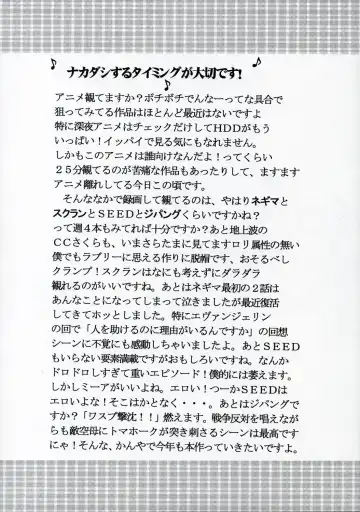 ナカダシするタイミングが大切です!
アニメ観てますか?ボチボチでんなーってな具合で
狙ってみてる作品はほとんど最近はないですよ
特に深夜アニメはチェックだけしてHDDがもう
いっぱい!イッパイで見る気にもなれません。
しかもこのアニメは誰向けなんだよ!ってくらい
25分観てるのが苦痛な作品もあったりして、ますます
アニメ離れしてる今日この頃です。
そんななかで録画して観てるのは、やはりネギマと
スクランとSEEDとジパングくらいですかね?
って週4本もみてれば十分ですか?あと地上波の
CCさくらも、いまさらたまに見てますロリ属性の無い
僕でもラブリーに思える作りに脱帽です、おそるべし
クランプ!スクランはなにも考えずにダラダラ
観れるのがいいですね。あとはネギマ最初の2話は
あんなことになってしまって泣きましたが最近復活
してきてホッとしました。特にエヴァンジェリン
の回で「人を助けるのに理由がいるんですか」の回想
シーンに不覚にも感動しちゃいましたよ。あとSEED
もいらない要素満載ですがおもしろいですね。なんか
ドロドロしすぎて重いエピソード!僕的には萎えます。
しかしミーアがいいよね。エロい!つーかSEEDは
エロいよな!そこはかとなく・・・。あとはジパングで
すか?「ワスプ撃沈!!」燃えます。戦争反対を唱えなが
らも敵空母にトマホークが突き刺さるシーンは最高です
にゃ!そんな、かんやで今年も本作っていきたいですよ。